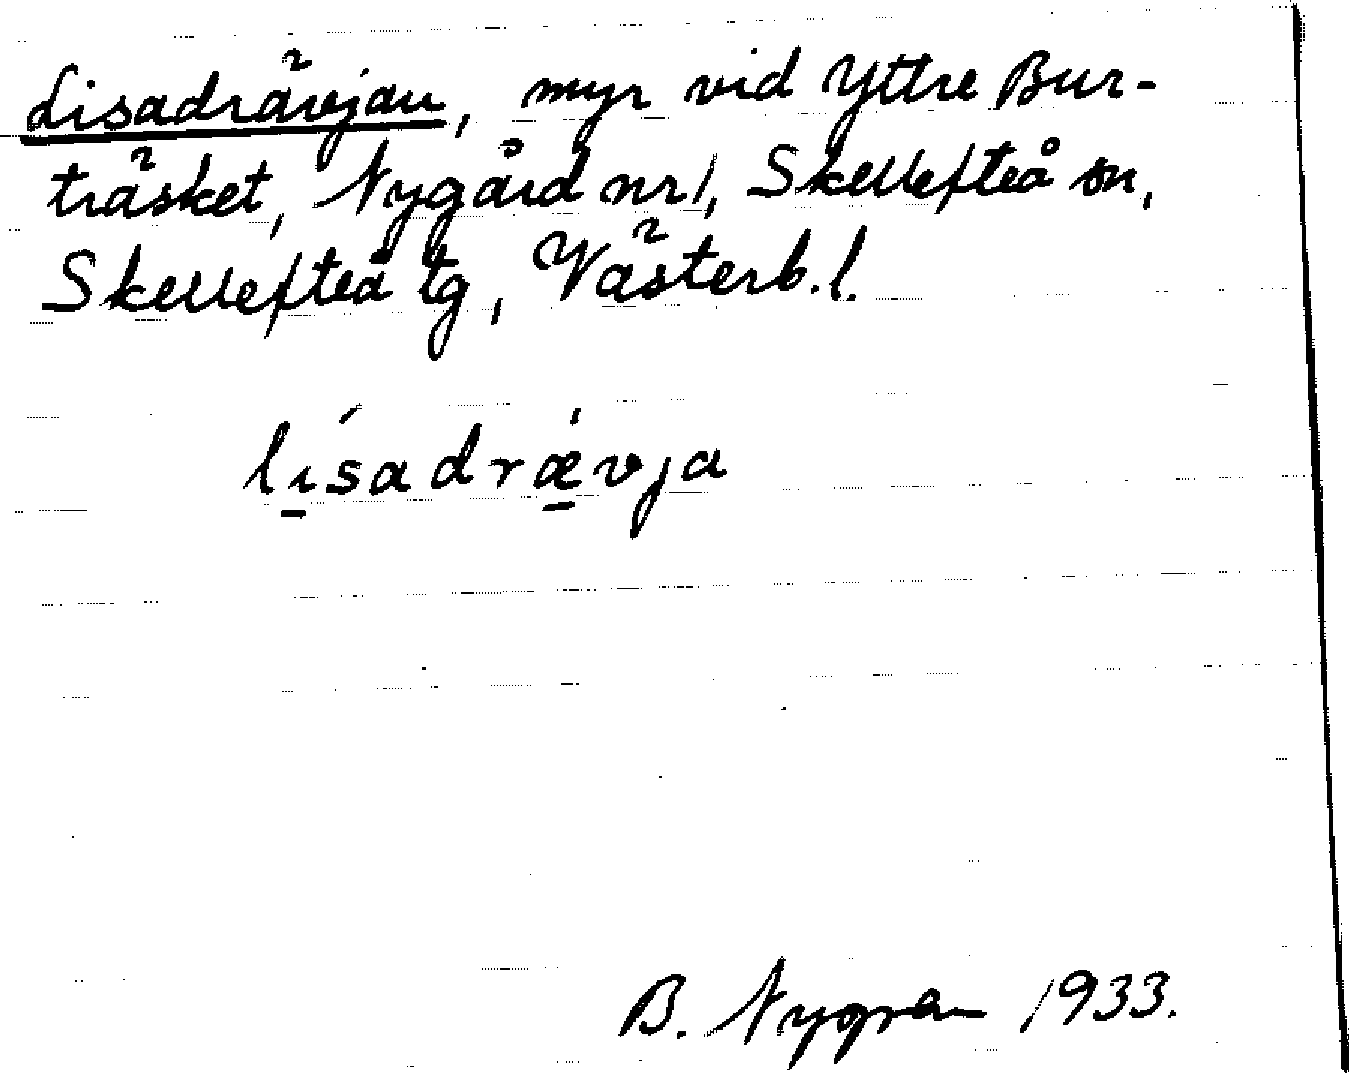 Lisadrävjan, myr vid Yttre Bur-
träsket, Nygård nr 1, Skellefteå sn,
Skellefteå tg, Västerb. l.
lísadrǽvja
B. Nygren 1933.